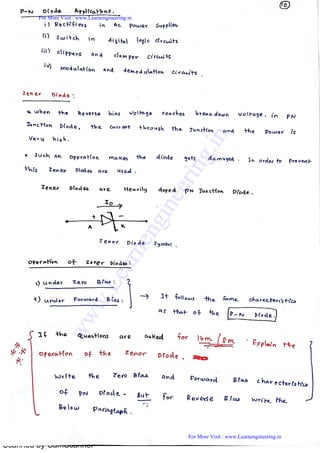 For More Visit : www.Learnengineering.in
10
P-N Diode Applications.
i) Rectifiers in Ac Power Supplies
ii) Switch in digital logic circuits
iii) clippers and clamper circuits
iv) modulation and demodulation circuits.
Zener Diode :
* When the Reverse bias voltage reaches breakdown voltage, in PN
Junction Diode, the current through the Junction and the power is
Very high.
* Such an operation makes the diode gets damaged. In order to Prevent
this Zener Diodes are used.
Zener Diodes are Heavily doped PN Junction Diode.
ID
+
-
A
K
Zener Diode Symbol.
www.Learnengineering.in
Operation of Zener Diodes:
1) Under Zero Bias :
2) Under Forward Bias :
→ It follows the same characteristics
as that of the P-N diode.
If the Questions are asked for 16m / 8m "Explain the
operation of the Zener Diode.
Write the Zero Bias and Forward Bias characteristics
of PN Diode. But for Reverse Bias write the
Below Paragraph.
For More Visit : www.Learnengineering.in
Scanned by CamScanner